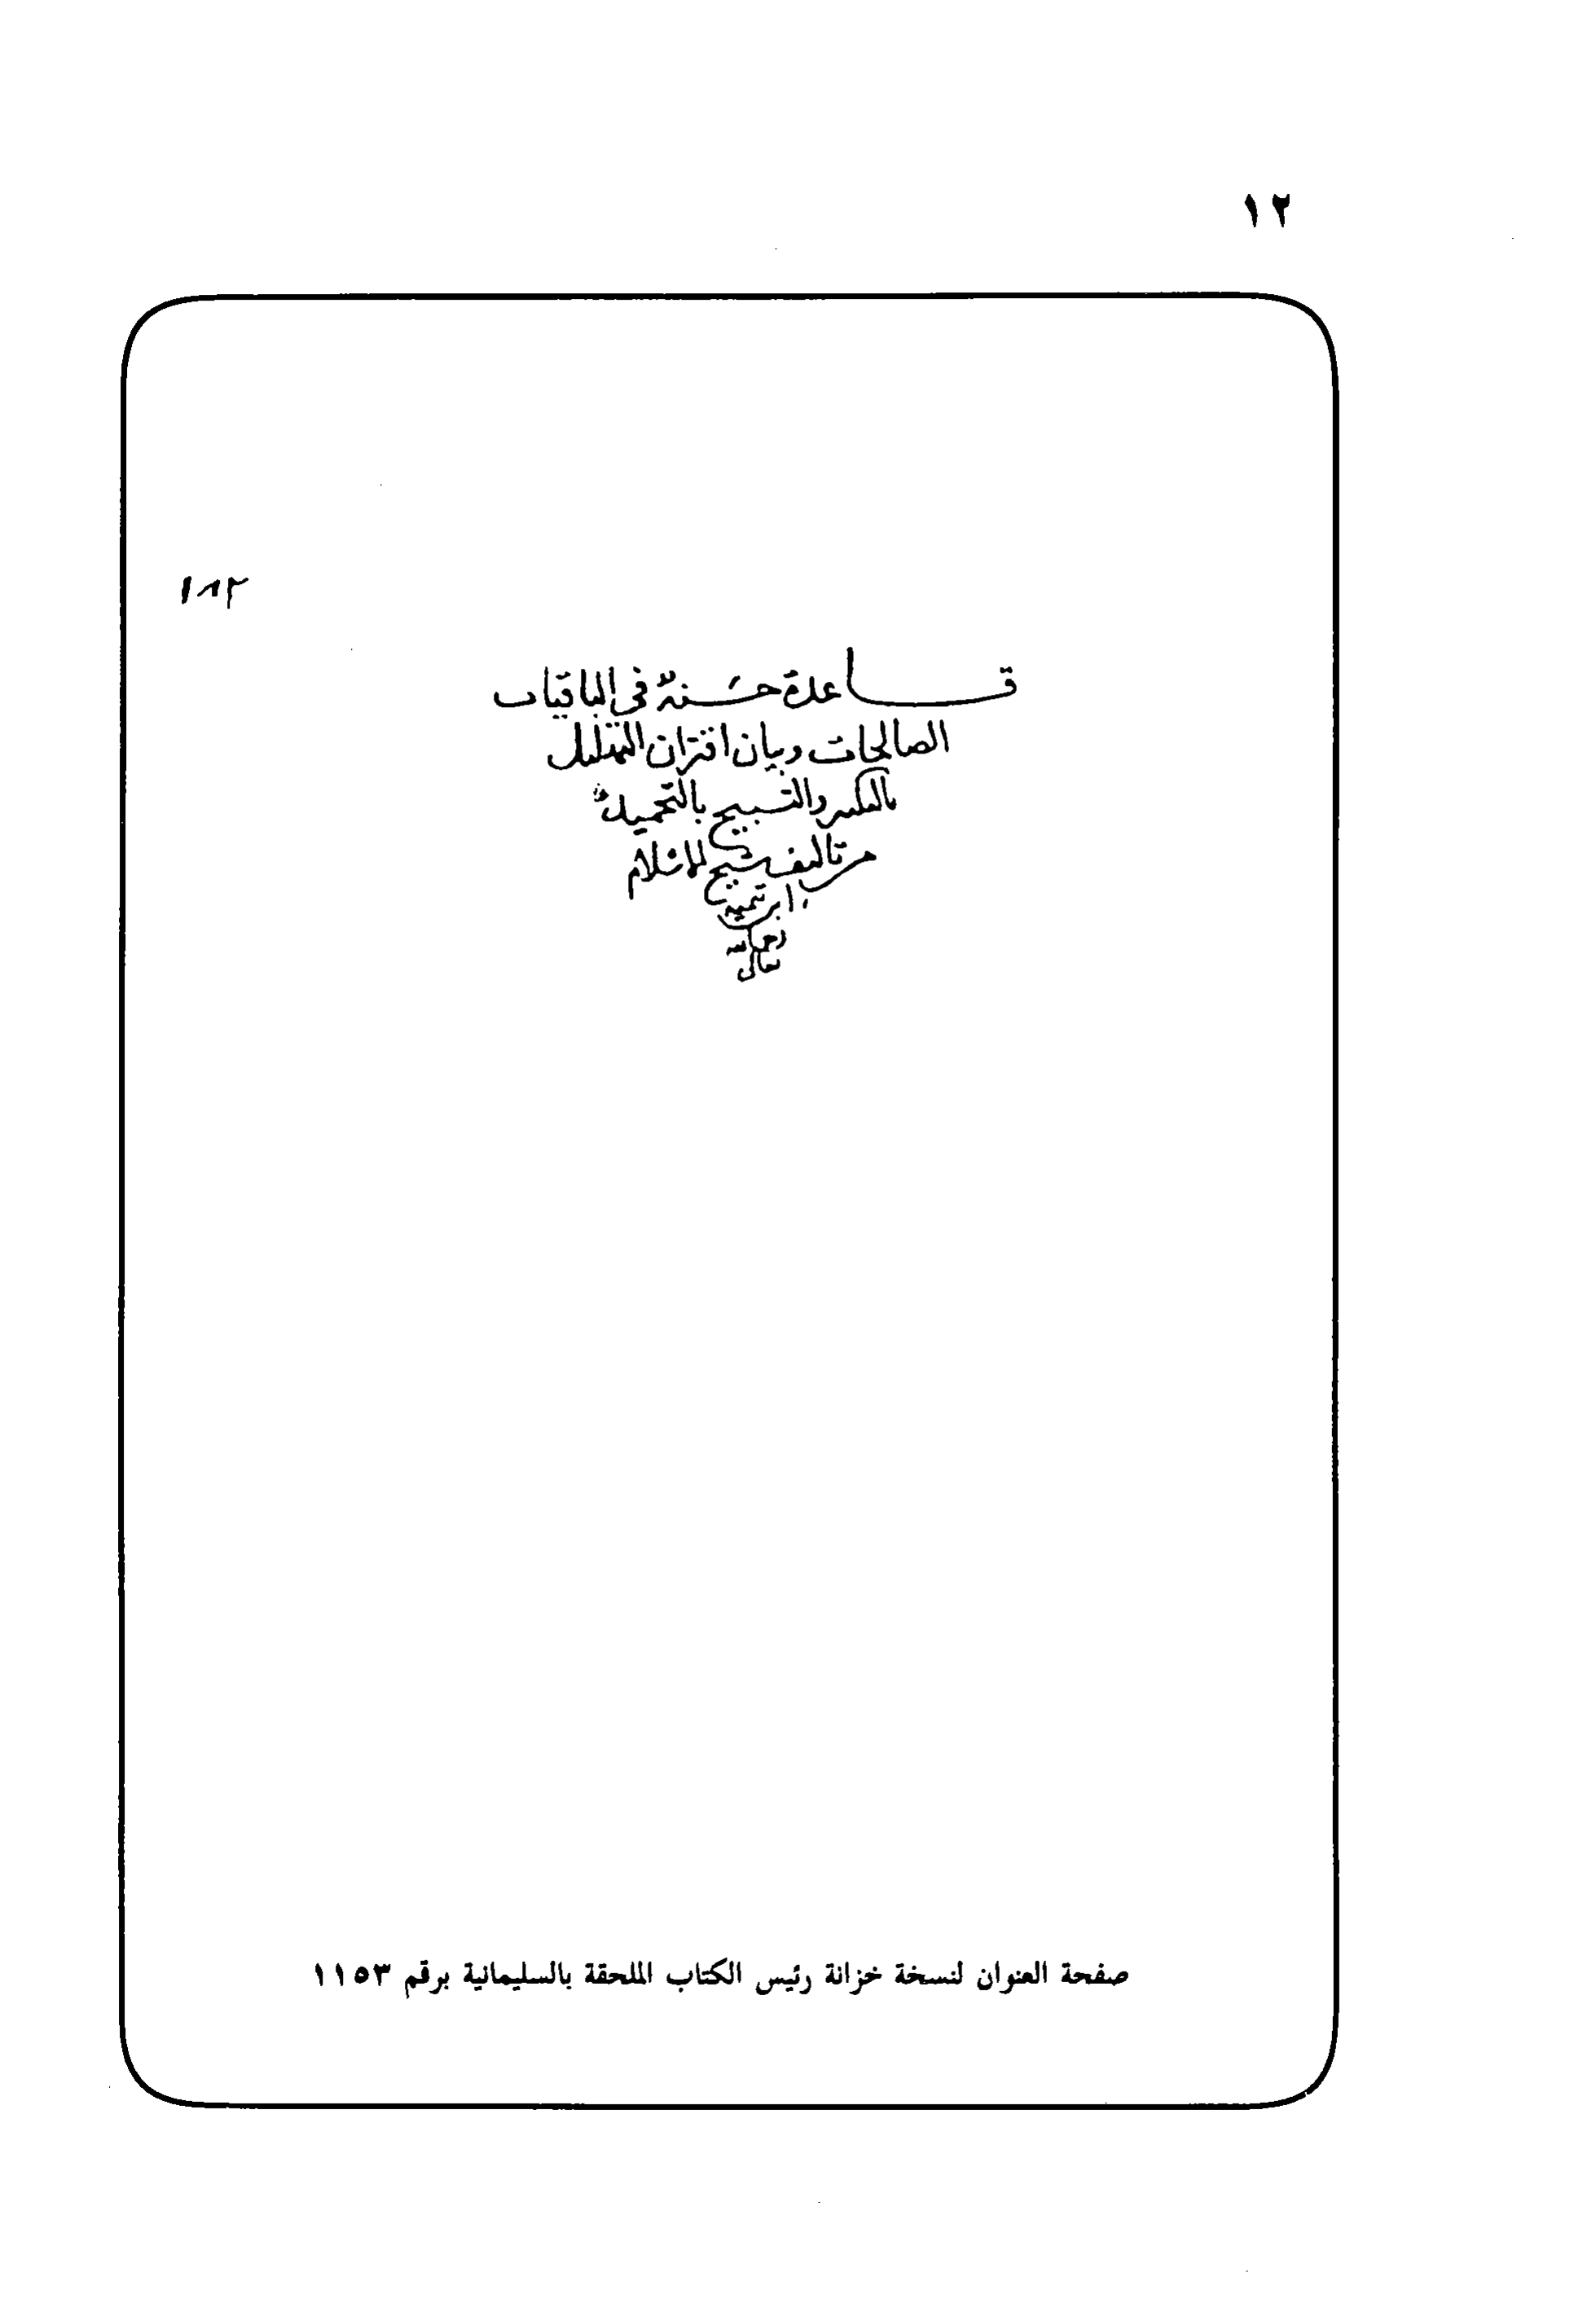 ١٢
١٨٢
قاعدة حسنة في الباقيات
الصالحات وبيان اقتران التهليل
بالتكبير والتسبيح بالتحميد
من تأليف شيخ الإسلام
ابن تيمية
رحمه الله
تعالى
صفحة العنوان لنسخة خزانة رئيس الكتاب الملحقة بالسليمانية برقم ١١٥٣